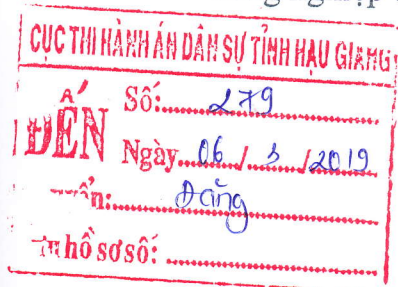 CỤC THI HÀNH ÁN DÂN SỰ TỈNH HẬU GIANG
ĐẾN
Số: 279
Ngày 06 / 3 / 2019
Đăng
hồ sơ số: